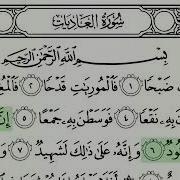 سُورَةُ العَادِيَاتِ
بِسْمِ اللَّهِ الرَّحْمَٰنِ الرَّحِيمِ
ضَبْحًا ١ فَالْمُورِيَٰتِ قَدْحًا ٢
بِهِ نَقْعًا ٤ فَوَسَطْنَ بِهِ جَمْعًا ٥ إِنَّ
٦ وَإِنَّهُ عَلَىٰ ذَٰلِكَ لَشَهِيدٌ ٧